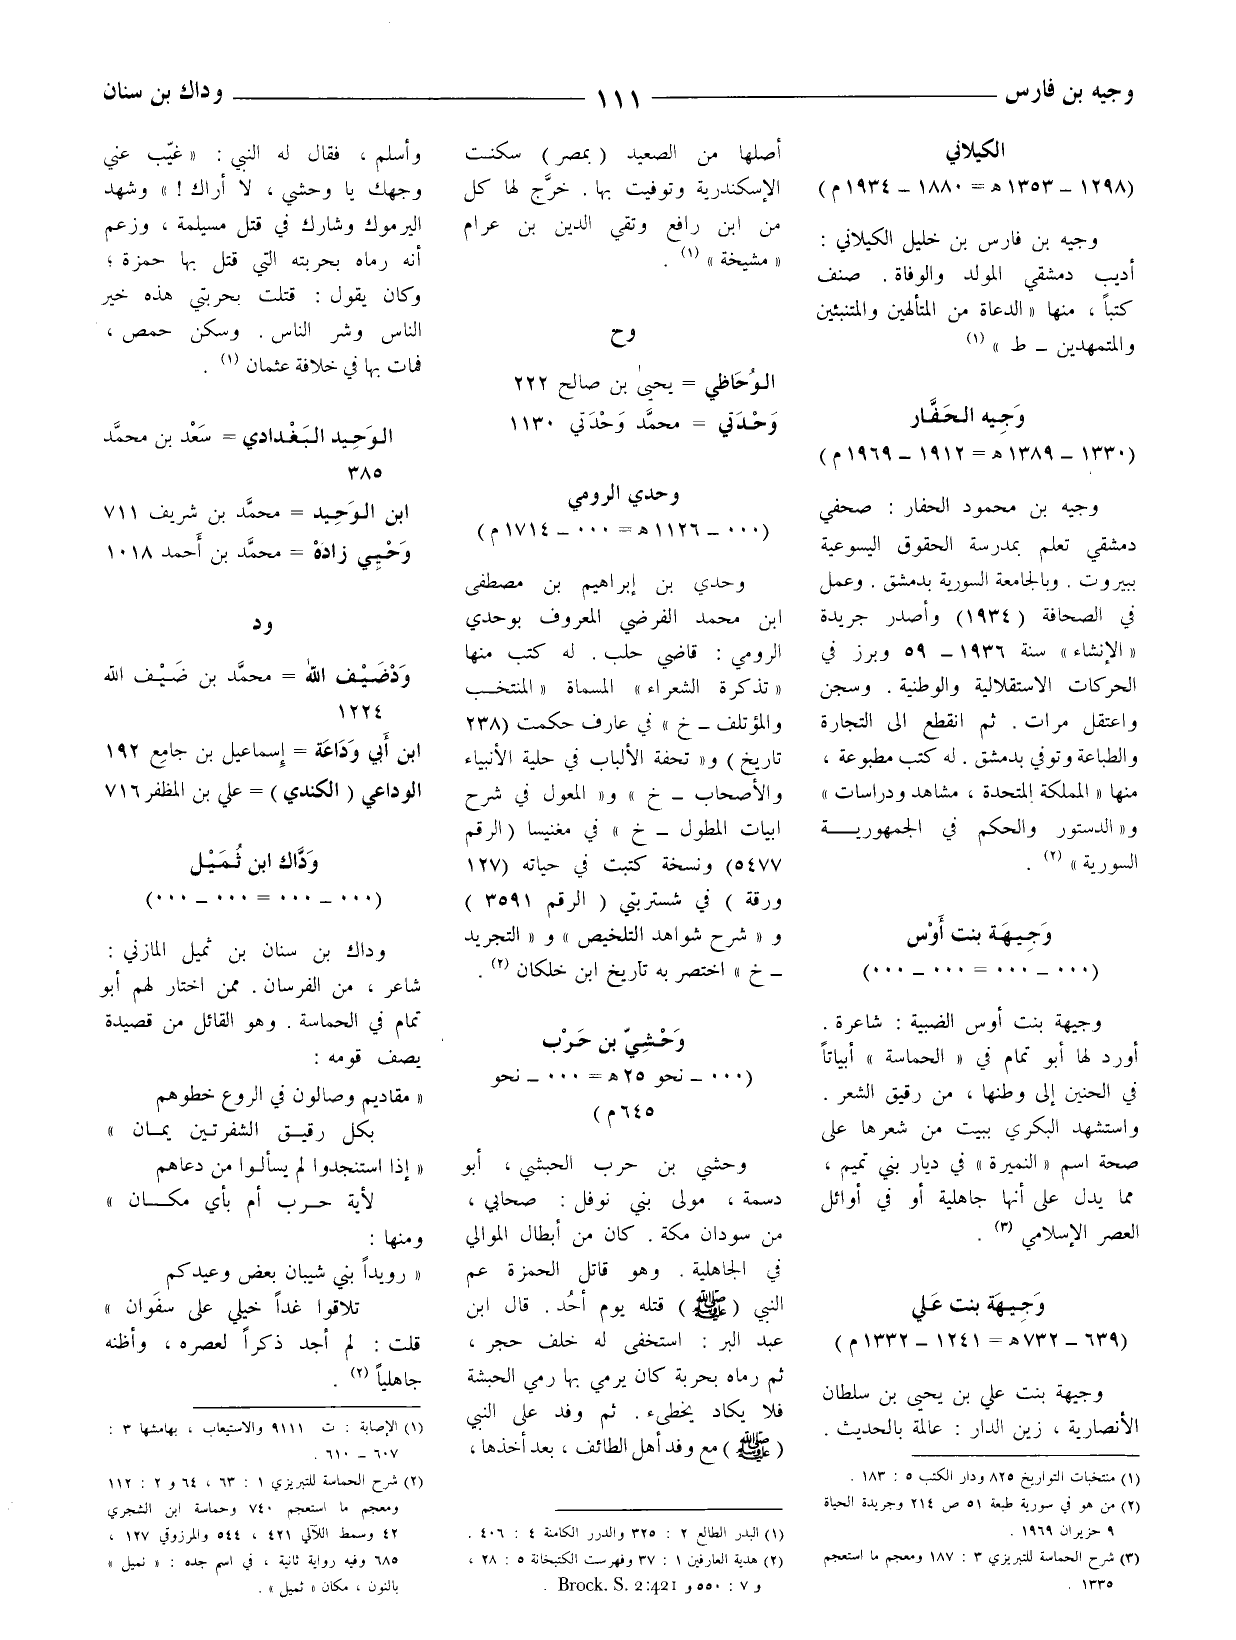 وجيه بن فارس ——— ١١١ ——— وداك بن سنان
الكيلاني
(١٢٩٨ – ١٣٥٣ ه = ١٨٨٠ – ١٩٣٤ م)
وجيه بن فارس بن خليل الكيلاني :
أديب دمشقي المولد والوفاة . صنف
كتباً ، منها « الدعاة من المتألهين والمتنبئين
والمتمهدين – ط » (١)
وَجِيه الحَفَّار
(١٣٣٠ – ١٣٨٩ ه = ١٩١٢ – ١٩٦٩ م)
وجيه بن محمود الحفار : صحفي
دمشقي تعلم بمدرسة الحقوق اليسوعية
ببيروت . وبالجامعة السورية بدمشق . وعمل
في الصحافة (١٩٣٤) وأصدر جريدة
« الإنشاء » سنة ١٩٣٦ – ٥٩ وبرز في
الحركات الاستقلالية والوطنية . وسجن
واعتقل مرات . ثم انقطع الى التجارة
والطباعة وتوفي بدمشق . له كتب مطبوعة ،
منها « المملكة المتحدة ، مشاهد ودراسات »
و« الدستور والحكم في الجمهورية
السورية » (٢) .
وَجِيهَة بنت أَوْس
(٠٠٠ – ٠٠٠ = ٠٠٠ – ٠٠٠)
وجيهة بنت أوس الضبية : شاعرة .
أورد لها أبو تمام في « الحماسة » أبياتاً
في الحنين إلى وطنها ، من رقيق الشعر .
واستشهد البكري ببيت من شعرها على
صحة اسم « النميرة » في ديار بني تميم ،
مما يدل على أنها جاهلية أو في أوائل
العصر الإسلامي (٣) .
وَجِيهَة بنت عَلي
(٦٣٩ – ٧٣٢ ه = ١٢٤١ – ١٣٣٢ م)
وجيهة بنت علي بن يحيى بن سلطان
الأنصارية ، زين الدار : عالمة بالحديث .
(١) منتخبات التواريخ ٨٢٥ ودار الكتب ٥ : ١٨٣ .
(٢) من هو في سورية طبعة ٥١ ص ٢١٤ وجريدة الحياة
٩ حزيران ١٩٦٩ .
(٣) شرح الحماسة للتبريزي ٣ : ١٨٧ ومعجم ما استعجم
١٣٣٥ .
أصلها من الصعيد ( بمصر ) سكنت
الإسكندرية وتوفيت بها . خرَّج لها كل
من ابن رافع وتقي الدين بن عرام
« مشيخة » (١) .
وح
الوُحَاظي = يحيىٰ بن صالح ٢٢٢
وَحْدَتي = محمَّد وَحْدَتي ١١٣٠
وحدي الرومي
(٠٠٠ – ١١٢٦ ه = ٠٠٠ – ١٧١٤ م)
وحدي بن إبراهيم بن مصطفى
ابن محمد الفرضي المعروف بوحدي
الرومي : قاضي حلب . له كتب منها
« تذكرة الشعراء » المسماة « المنتخب
والمؤتلف – خ » في عارف حكمت (٢٣٨
تاريخ ) و« تحفة الألباب في حلية الأنبياء
والأصحاب – خ » و« المعول في شرح
ابيات المطول – خ » في مغنيسا ( الرقم
٥٤٧٧) ونسخة كتبت في حياته (١٢٧
ورقة ) في شستربتي ( الرقم ٣٥٩١ )
و « شرح شواهد التلخيص » و « التجريد
– خ » اختصر به تاريخ ابن خلكان (٢) .
وَحْشِيّ بن حَرْب
(٠٠٠ – نحو ٢٥ ه = ٠٠٠ – نحو
٦٤٥ م )
وحشي بن حرب الحبشي ، أبو
دسمة ، مولى بني نوفل : صحابي ،
من سودان مكة . كان من أبطال الموالي
في الجاهلية . وهو قاتل الحمزة عم
النبي (ﷺ) قتله يوم أُحُد . قال ابن
عبد البر : استخفى له خلف حجر ،
ثم رماه بحربة كان يرمي بها رمي الحبشة
فلا يكاد يخطىء . ثم وفد على النبي
(ﷺ) مع وفد أهل الطائف ، بعد أخذها ،
(١) البدر الطالع ٢ : ٣٢٥ والدرر الكامنة ٤ : ٤٠٦ .
(٢) هدية العارفين ١ : ٣٧ وفهرست الكتبخانة ٥ : ٢٨ ،
و ٧ : ٥٥٠ و Brock. S. 2:421 .
وأسلم ، فقال له النبي : « غيّب عني
وجهك يا وحشي ، لا أراك ! » وشهد
اليرموك وشارك في قتل مسيلمة ، وزعم
أنه رماه بحربته التي قتل بها حمزة ؛
وكان يقول : قتلت بحربتي هذه خير
الناس وشر الناس . وسكن حمص ،
فمات بها في خلافة عثمان (١) .
الوَحِيد البَغْدادي = سَعْد بن محمَّد
٣٨٥
ابن الوَحِيد = محمَّد بن شريف ٧١١
وَحْيِي زادَهْ = محمَّد بن أَحمد ١٠١٨
ود
وَدْضَيْف اللّه = محمَّد بن ضَيْف الله
١٢٢٤
ابن أَبي وَدَاعَة = إسماعيل بن جامِع ١٩٢
الوداعي ( الكندي ) = علي بن المظفر ٧١٦
وَدَّاك ابن ثُمَيْل
(٠٠٠ – ٠٠٠ = ٠٠٠ – ٠٠٠)
وداك بن سنان بن ثميل المازني :
شاعر ، من الفرسان . ممن اختار لهم أبو
تمام في الحماسة . وهو القائل من قصيدة
يصف قومه :
« مقاديم وصالون في الروع خطوهم
بكل رقيق الشفرتين يمان »
« إذا استنجدوا لم يسألوا من دعاهم
لأية حرب أم بأي مكان »
ومنها :
« رويداً بني شيبان بعض وعيدكم
تلاقوا غداً خيلي على سفَوان »
قلت : لم أجد ذكراً لعصره ، وأظنه
جاهلياً (٢) .
(١) الإصابة : ت ٩١١١ والاستيعاب ، بهامشها ٣ :
٦٠٧ – ٦١٠ .
(٢) شرح الحماسة للتبريزي ١ : ٦٣ ، ٦٤ و ٢ : ١١٢
ومعجم ما استعجم ٧٤٠ وحماسة ابن الشجري
٤٢ وسمط اللآلي ٤٢١ ، ٥٤٤ والمرزوقي ١٢٧ ،
٦٨٥ وفيه رواية ثانية ، في اسم جده : « نميل »
بالنون ، مكان « ثميل » .